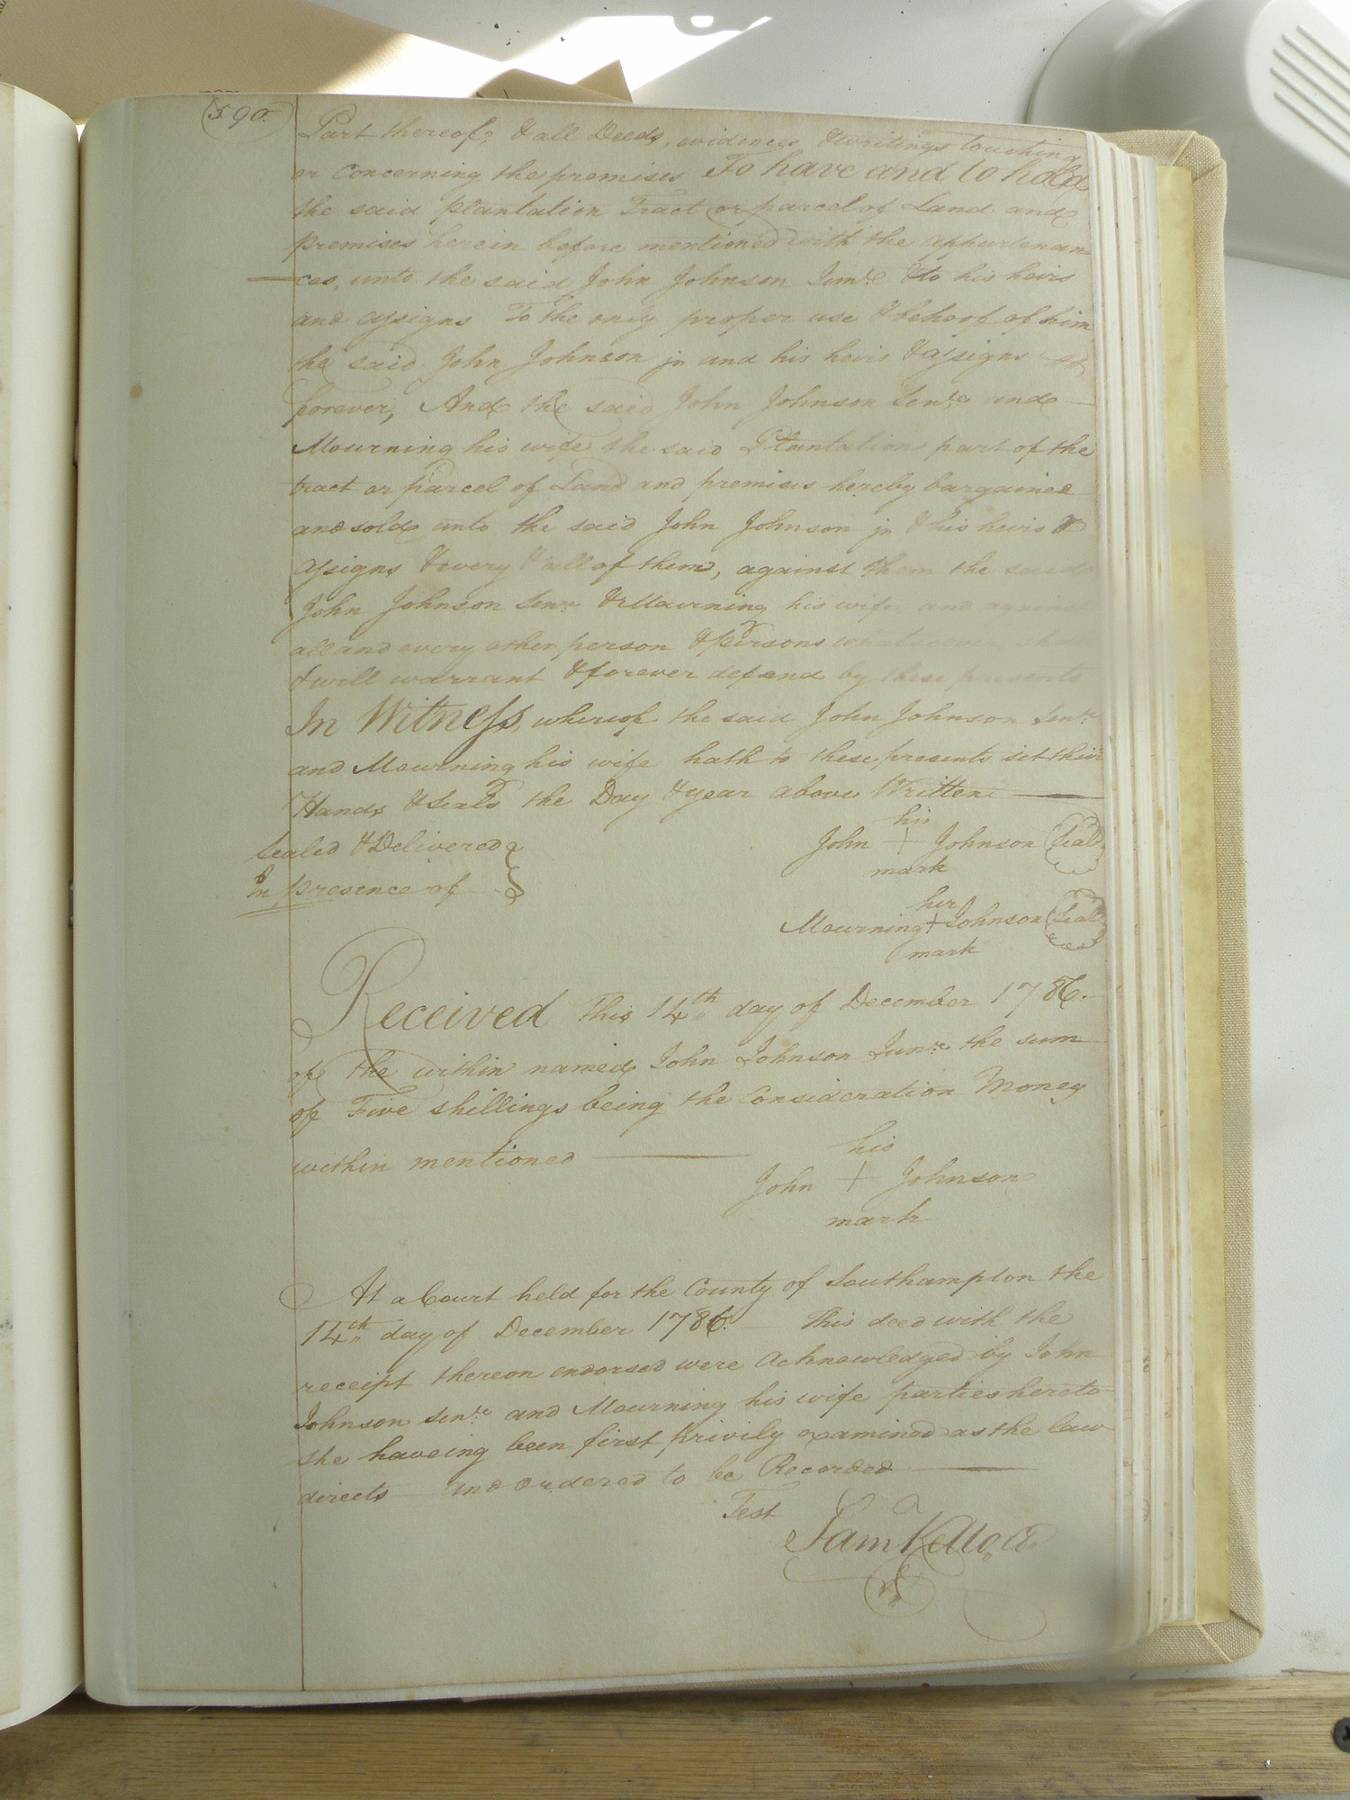 590.
Part thereof, & all Deeds, evidences & writings touching
or Concerning the premises To have and to hold
the said plantation Tract or parcel of Land and
premises herein before mentioned with the appurtenan
ces, unto the said John Johnson Junr. & to his heirs
and assigns To the only proper use & behoof of him
the said John Johnson jr and his heirs & assigns
forever, And the said John Johnson Senr. and
Mourning his wife the said Plantation part of the
tract or parcel of Land and premises hereby bargained
and sold unto the said John Johnson jr & his heirs &
assigns & every & all of them, against them the said
John Johnson Senr. & Mourning his wife and against
all and every other person & persons whatsoever shall
& will warrant & forever defend by these presents
In Witness, whereof the said John Johnson Senr.
and Mourning his wife hath to these presents set their
Hands & Seals the Day & year above Written
Sealed & Delivered
In presence of
his
John + Johnson Seal
mark
her
Mourning + Johnson Seal
mark
Received this 14th day of December 1786.
of the within named John Johnson Junr. the sum
of Five shillings being the Consideration Money
within mentioned
his
John + Johnson
mark
At a Court held for the County of Southampton the
14th day of December 1786. This deed with the
receipt thereon endorsed were Acknowledged by John
Johnson Senr. and Mourning his wife parties hereto
she haveing been first privily examined as the law
directs and ordered to be Recorded
Test
Sam Kello, Cl